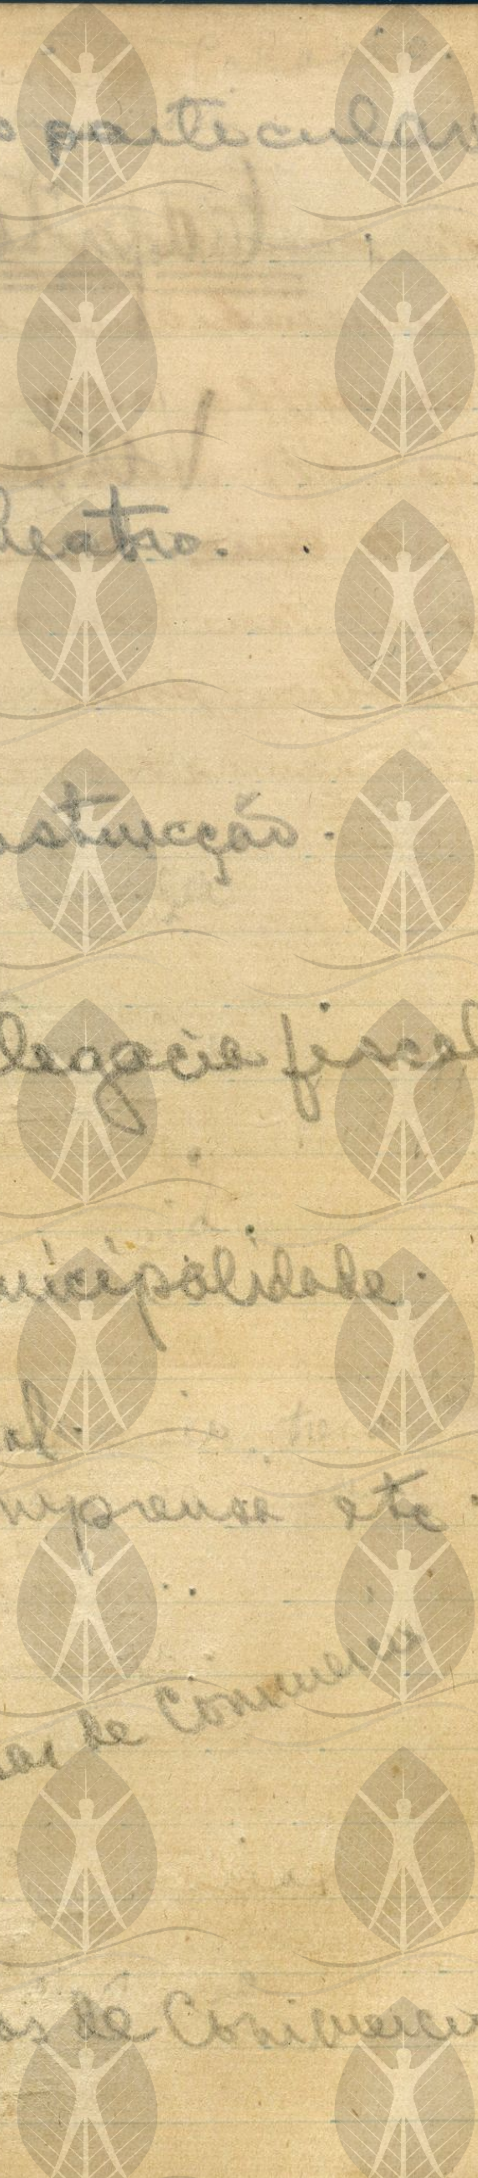 particular
heatro.
strucção.
legacia fiscal
nicipalidade.
al.
mprensa etc.
as de Commercio
os de Commercio